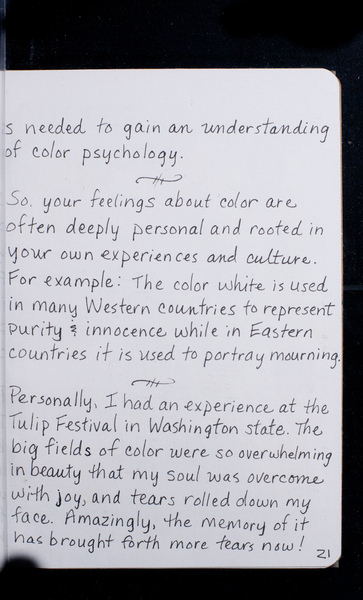 s needed to gain an understanding
of color psychology.
So, your feelings about color are
often deeply personal and rooted in
your own experiences and culture.
For example: The color white is used
in many Western countries to represent
purity & innocence while in Eastern
countries it is used to portray mourning.
Personally, I had an experience at the
Tulip Festival in Washington state. The
big fields of color were so overwhelming
in beauty that my soul was overcome
with joy, and tears rolled down my
face. Amazingly, the memory of it
has brought forth more tears now!
21